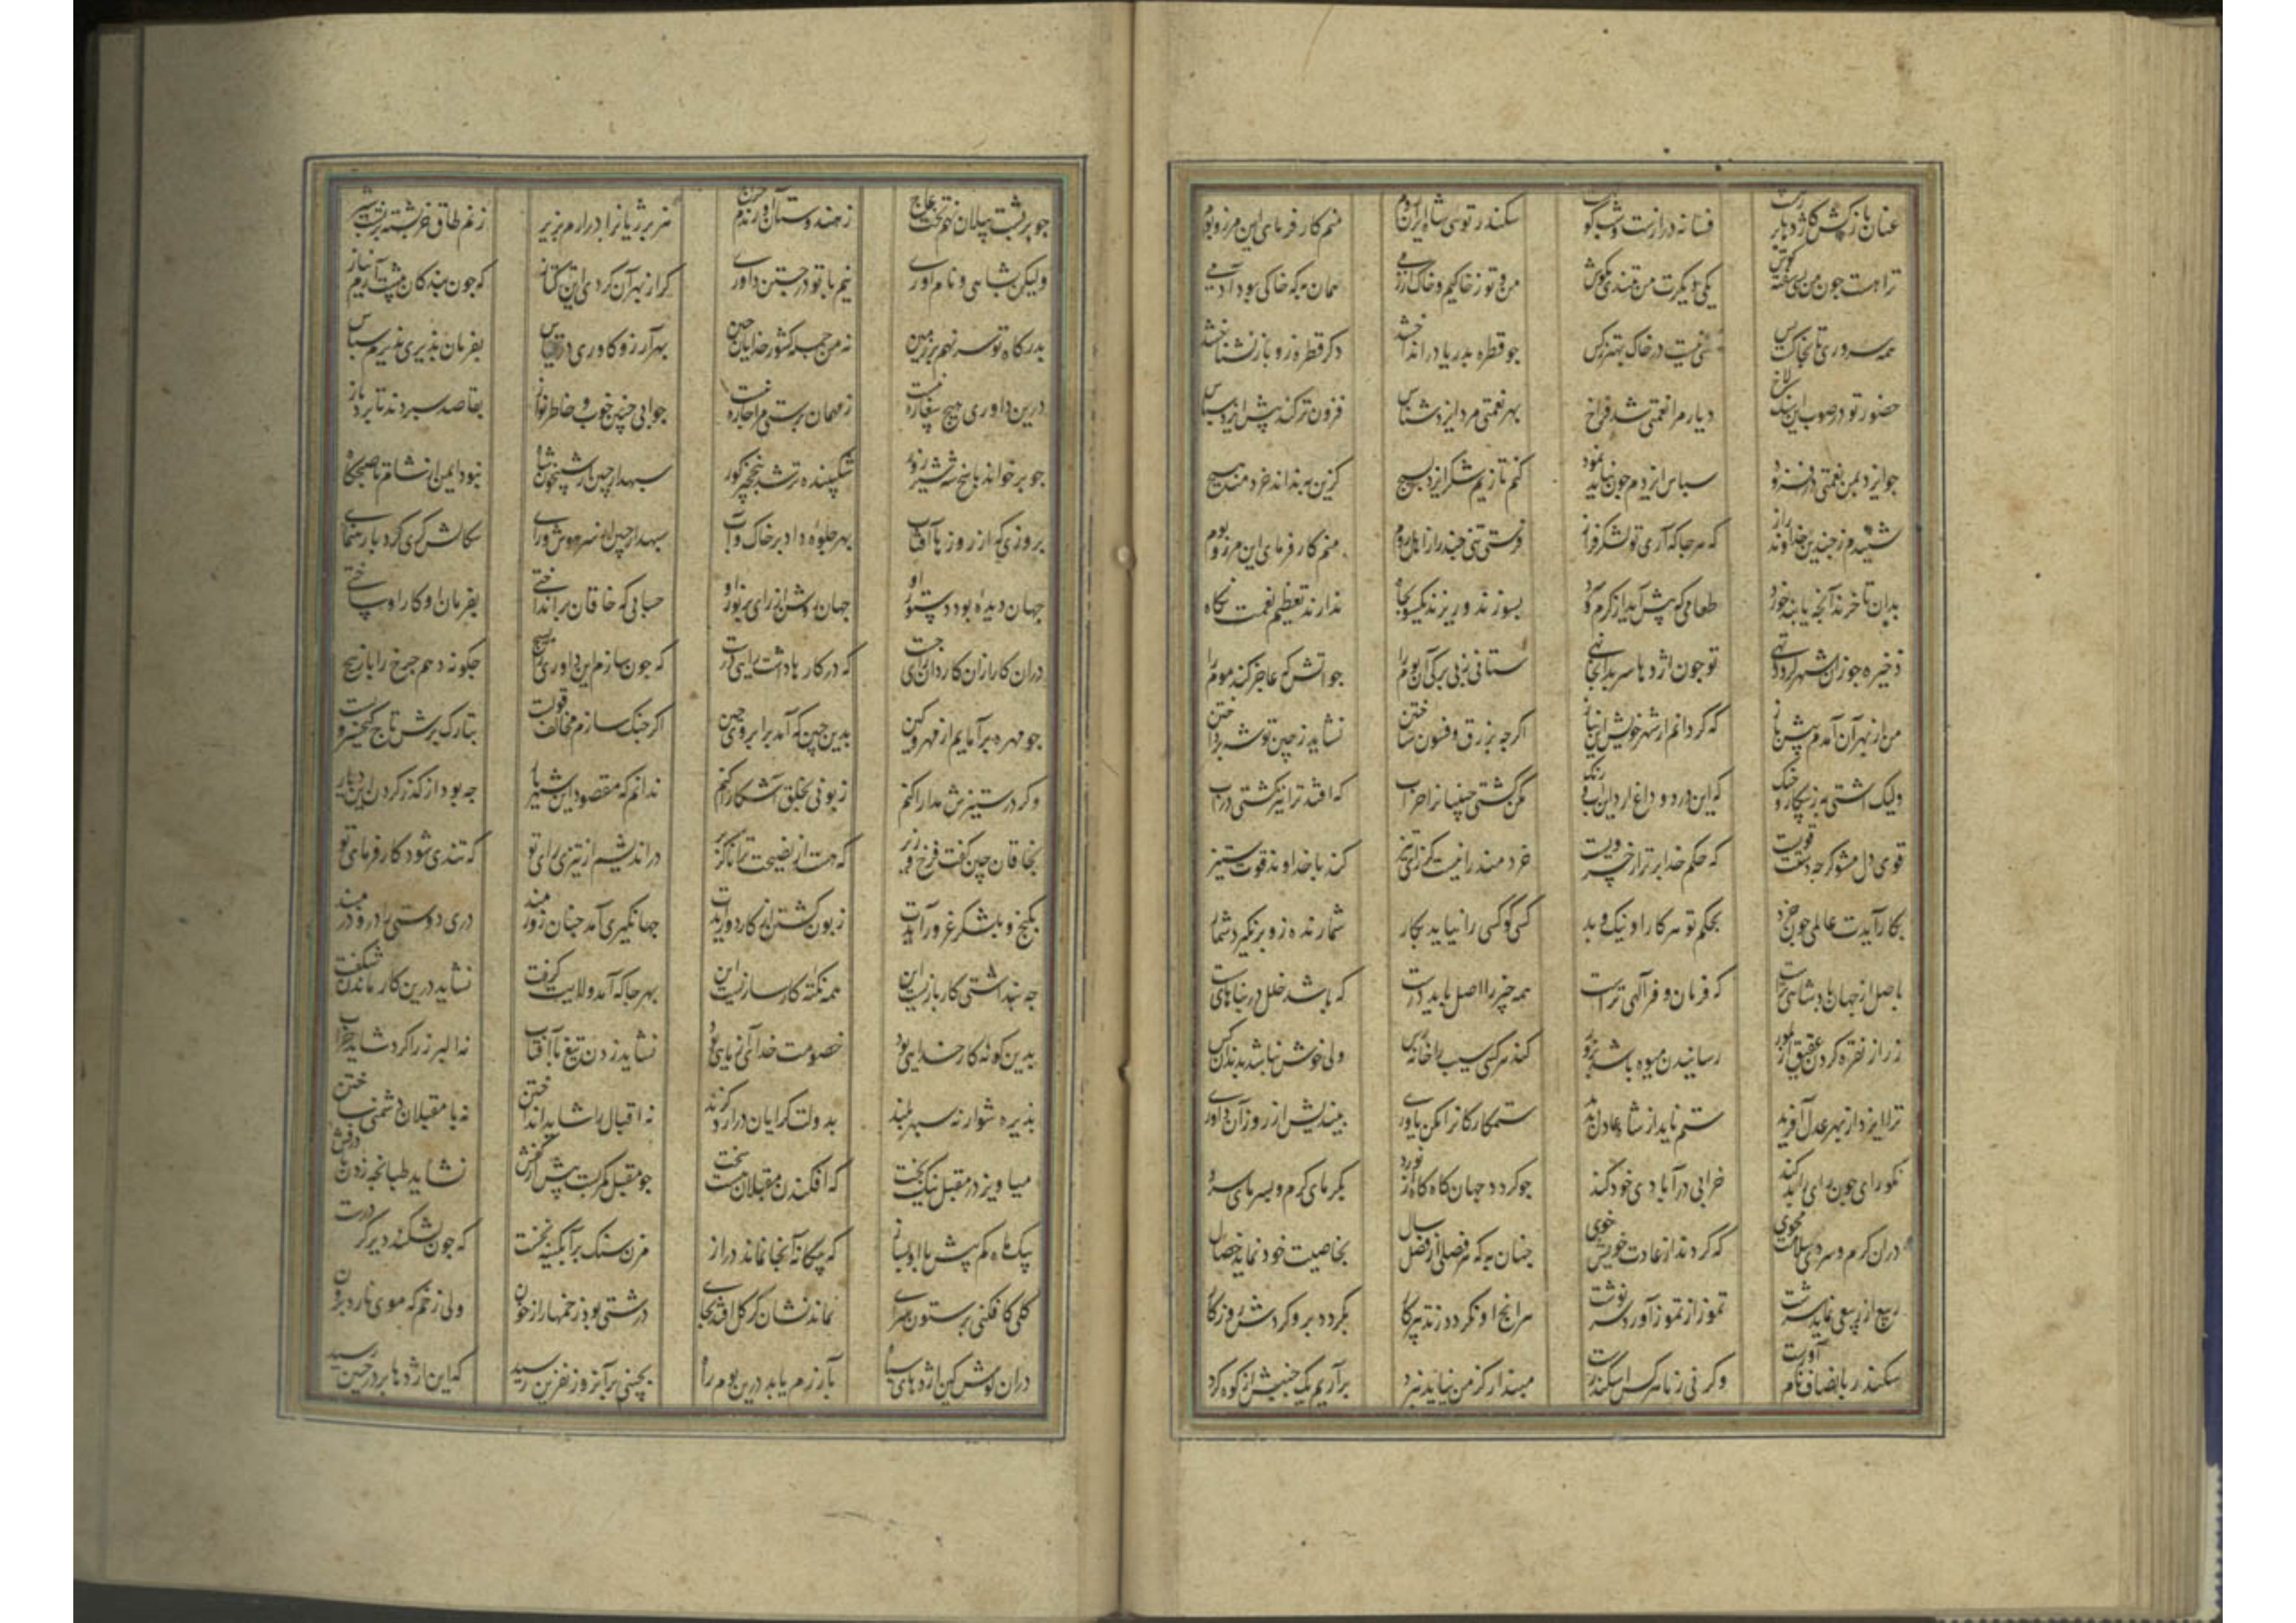 عنان بازکش کاژدها بر رهست فسانه درازست و شب کوتهست سکندر توی شاه ایران و روم منم کارفرمای این مرز و بوم
ترا هست جون من بسی سفته کوش یکی دیکرت من بتندی مکوش من و تو ز خاکیم و خاک از زمی همان به که خاکی بود آدمی
همه سروری تا بخاکست بس کسی نیست در خاک بهتر ز کس جو قطره بدریا در انداختند دکر قطره زو باز نشناختند
حضور تو در صوب این سنکلاخ دیار مرا نعمتی شد فراخ بهر نعمتی مرد ایزد شناس فزون تر کند پیش ایزد سپاس
جو ایزد بمن نعمتی در فزود سپاس ایزدم جون نباید نمود کنم تا زیم شکر ایزد بسیج کزین به نداند خردمند هیچ
شنیدم ز جندین خداوند راز که هر جا که آری تو لشکر فراز فرستی تنی جند را ز اهل روم منم کارفرمای این مرز و بوم
بدان تا خرند آنچه یابند خورد طعامی که پیش آید از کرم و سرد بسوزند و ریزند یکسر بجاه ندارند تعظیم نعمت نکاه
ذخیره جو زان شهر کردد تهی تو جون اژدها سر بدانجا نهی ستانی بزبی برکی آن بوم را جو اتش که عاجز کند موم را
من از بهر آن آمدم پیش باز که کردانم از شهر خویش این نیاز اکرجه بزرق و فسون ساختن نشاید ز چین توشه پرداختن
ولیک اشتی به ز پیکار و جنک که این درد و داغ آرد این آب و رنک مکن کشتی جینیانرا خراب که افتد ترا نیز کشتی در آب
قوی دل مشو کرجه دستت قویست که حکم خدا برتر از خسرویست خردمند را نیست کز راه تیز کند با خداوند قوت ستیز
بکار آیدت عالمی جون خرد بحکم تو هر کار او نیک و بد کسی کو کسی را نیاید بکار شمارنده زو برنکیرد شمار
باصل از جهان پادشاهی تراست که فرمان و فر آلهی تراست همه چیز را اصل باید درست که باشد خلل در بناهای سست
زر از نقره کردن عقیق از بلور رسانیدن میوه باشد بزور کند هر کسی سیب را خانه رس ولی خوش نباشد بدندان کس
ترا ایزد از بهر عدل آفرید ستم ناید از شاه عادل پدید ستمکارکانرا مکن یاوری بیندیش از روز آن داوری
نکو رای جون رای را بد کند خرابی در آبادی خود کند جو کردد جهان کاه کاه از نورد بکرمای کرم و بسرمای سرد
دران کرم و سردی سلامت مجوی که کرداند از عادت خویش خوی جنان به که هر فصلی از فصل سال بخاصیت خود نماید خصال
ربیع از ربیعی نماید سرشت تموز از تموز آورد سرنوشت هرانج او نکردد ز تدبیر کار بکردد برو کردش روزکار
سکندر بانصاف نام آورست و کر نی ز ما هر کس اسکندرست مپندار کز من نیاید نبرد برآرم بیک جنبش از کوه کرد
جو بر پشت پیلان نهم تخت عاج ز هندوستان آورندم خراج هزبر ژیانرا درارم بزیر زنم طاق خرپشته بر پشت شیر
ولیکن بشاهی و نام آوری نیم با تو در جستن داوری کر از بهر آن کردی این ترکتاز که جون بندکان پیشت آرم نیاز
بدرکاه تو سر نهم بر زمین نه من جمله کشور خدایان جین بهر آرزو کاوری در قیاس بفرمان پذیری پذیرم سپاس
درین داوری هیج بیغاره نیست ز مهمان پرستی مرا جاره نیست جوابی چنین خوب و خاطر نواز بقاصد سپردند تا برد باز
جو برخواند پاسخ شه شیر زور شکیبنده تر شد بنخجیر کور سپهدار چین از شبیخون شاه نبود ایمن از شام تا صبحکاه
بروزی که از روزها آفتاب بهر جلوه داد بر خاک و آب سپهدار چین از سر هوش و رای سکالش کری کرد با رهنمای
جهان دیده بود دستور او جهان روشن از رای پر نور او حسابی که خاقان برانداختی بفرمان او کار او ساختی
دران کار ازان کاردان رای جست که در کارها داشت رایی درست که جون سازم این داوری را بسیج جکونه دهم جرخ را باز پیج
جو مهره برآمایم از مهر و کین بدین چین که آمد برابروی چین اکر جنک سازم مخالف قویست بتارک برش تاج کیخسرویست
و کر در ستیزش مدارا کنم زبونی بخلق آشکارا کنم ندانم که مقصود این شهریار جه بود از کذر کردن این دیار
بخاقان چین کفت فرخ وزیر که هست از نصیحت ترا ناکزیر در اندیشم از تیزی رای تو که تندی شود کارفرمای تو
بکنج و بلشکر غرور آیدت زبون کشتن از کار دور آیدت جهانکیری آمد جنان زورمند در دوستی را درو در مبند
جه پنداشتی کار بازیست این همه نکته کارسازیست این بهر جا که آمد ولایت کرفت نشاید درین کار ماندن شکفت
بدین کونه کار خدایی بود خصومت خدای آزمایی بود نشاید زدن تیغ با آفتاب نه البرز را کرد شاید خراب
پذیره شوار نه سپهر بلند بدولت کرایان درارد کزند نه اقبال را شاید انداختن نه با مقبلان دشمنی ساختن
میاویز در مقبل نیکبخت که افکندن مقبلانست سخت جو مقبل کمر بست پیش از کفش نشاید طبانجه زدن با درفش
یک ماه کم بیش با او بساز که بیکانه آنجا نماند دراز مزن سنک بر آبکینه نخست که جون بشکند دیر کردد درست
کلی کافکنی بر ستون سرای نماند نشان کر کل افتد بجای درشتی بود زخمها را ز خون ولی زخم که موی نارد برون
دران کوش کین اژدهای سیاه بآزرم یابد درین بوم راه بچینی برآنروز نفرین رسید که این اژدها بر در چین رسید